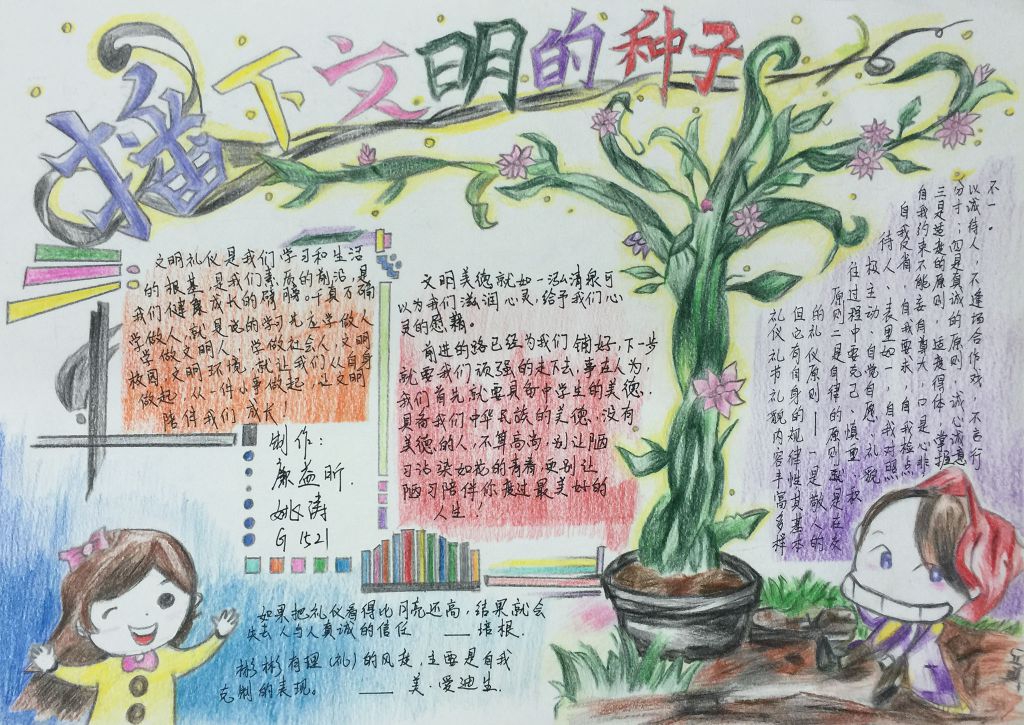 播下文明的种子
文明礼仪是我们学习和生活
的根基,是我们素质的前沿,是
我们健康成长的臂膀。千真万确
学做人,就是说的学习先应学做人
学做文明人,学做社会人,文明
校园,文明环境,就让我们从自身
做起,从一件小事做起,让文明
陪伴我们成长!
制作:
廖益昕.
姚涛
G1521
文明美德就如一泓清泉可
以为我们滋润心灵,给予我们心
灵的慰藉。
前进的路已经为我们铺好,下一步
就要我们顽强的走下去,事在人为,
我们首先就要具备中学生的美德.
具备我们中华民族的美德.没有
美德的人,不算高尚,别让陋
习沾染如花的青春,更别让
陋习陪伴你度过最美好的
人生!
礼仪礼节礼貌内容丰富多样
但它有自身的规律性其基本
的礼仪原则——一是敬人的
原则二是自律的原则就是在交
往过程中要克己、慎重、积
极主动、自觉自愿、礼貌
待人、表里如一,自我对照
自我反省,自我要求,自我检点
自我约束不能妄自尊大,口是心非
三是适度的原则 适度得体 掌握
分寸;四是真诚的原则,诚心诚意
以诚待人,不逢场合作戏,不言行
不一。
如果把礼仪看得比月亮还高,结果就会
失去人与人真诚的信任 ——培根.
彬彬有理(礼)的风度,主要是自我
克制的表现。 —— 美·爱迪生.